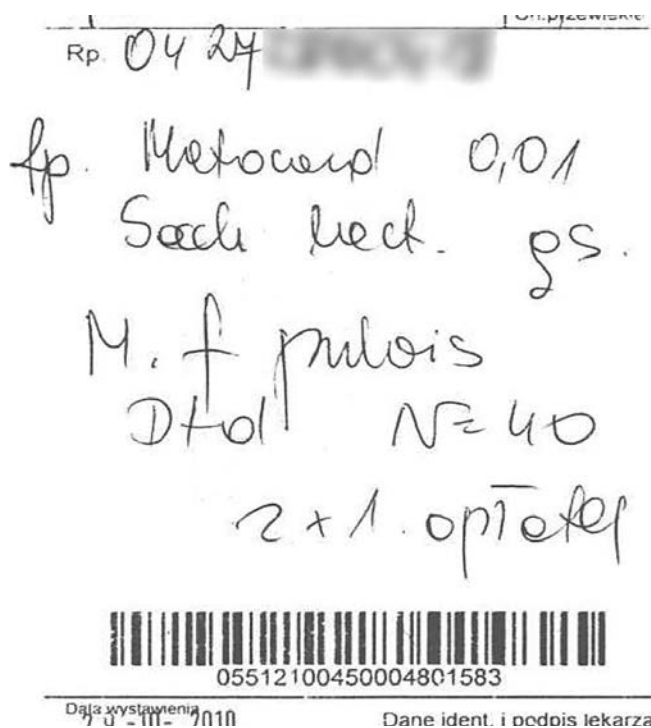 Rp. 04 27
Rp. Metocard 0,01
Sach lact. qs.
M. f pulvis
Dtd N=40
2 x 1. opłatej
055121004500048​01583
Data wystawienia
29 -III- 2010
Dane ident. i podpis lekarza